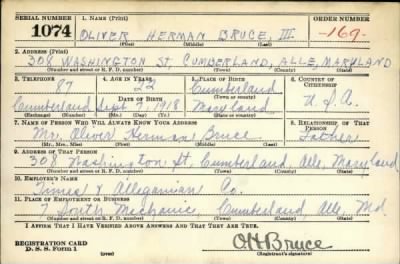 SERIAL NUMBER 1. NAME (Print) ORDER NUMBER
1074 OLIVER HERMAN BRUCE, III -169-
(First) (Middle) (Last)
2. ADDRESS (Print)
308 WASHINGTON ST, CUMBERLAND, ALLE, MARYLAND
(Number and street or R. F. D. number) (Town) (County) (State)
3. TELEPHONE 4. AGE IN YEARS 5. PLACE OF BIRTH 6. COUNTRY OF CITIZENSHIP
87 22 Cumberland
DATE OF BIRTH (Town or county)
Cumberland Sept 7, 1918 Maryland U.S.A.
(Exchange) (Number) (Mo.) (Day) (Yr.) (State or country)
7. NAME OF PERSON WHO WILL ALWAYS KNOW YOUR ADDRESS 8. RELATIONSHIP OF THAT PERSON
Mr. Oliver Herman Bruce Father
(Mr., Mrs., Miss) (First) (Middle) (Last)
9. ADDRESS OF THAT PERSON
308 Washington St, Cumberland, Alle, Maryland
(Number and street or R. F. D. number) (Town) (County) (State)
10. EMPLOYER'S NAME
Times & Alleganian Co.
11. PLACE OF EMPLOYMENT OR BUSINESS
7 South Mechanic, Cumberland, Alle, Md
(Number and street or R. F. D. number) (Town) (County) (State)
I AFFIRM THAT I HAVE VERIFIED ABOVE ANSWERS AND THAT THEY ARE TRUE.
REGISTRATION CARD
D. S. S. Form 1 (over) OHBruce
(Registrant's signature)